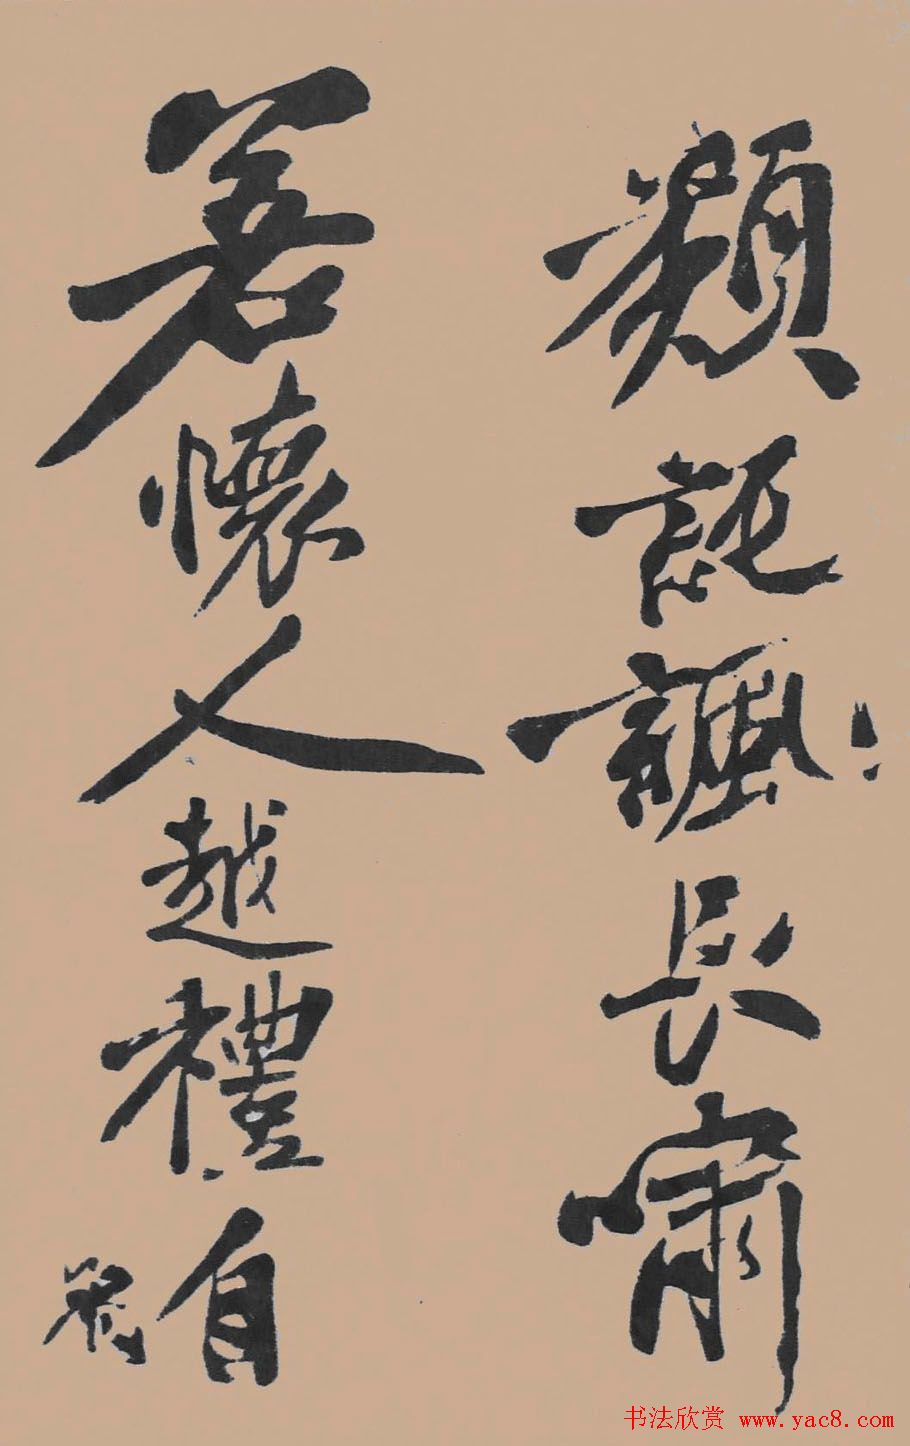 類託諷長嘯
若懷人越禮自
书法欣赏 www.yac8.com